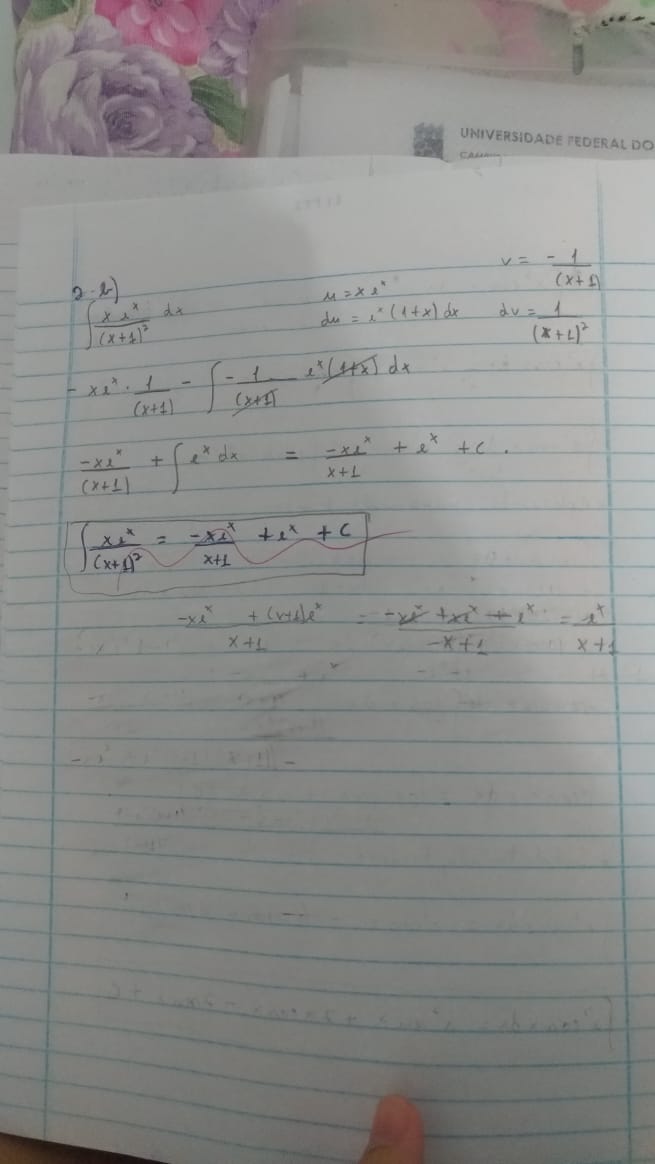 UNIVERSIDADE FEDERAL DO
2-b)
∫ x e^x / (x+1)² dx
u = x e^x
du = e^x (1+x) dx
v = - 1/(x+1)
dv = 1/(x+1)²
- x e^x · 1/(x+1) - ∫ - 1/(x+1) e^x (1+x) dx
-x e^x/(x+1) + ∫ e^x dx = -x e^x/x+1 + e^x + c.
∫ x e^x/(x+1)² = -x e^x/x+1 + e^x + C
-x e^x + (x+1)e^x / x+1 = -x e^x + x e^x + e^x / -x+1 = e^x / x+1